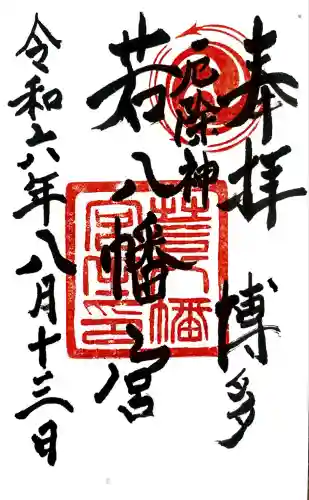 奉拝 博多
厄除神
若八幡宮
令和六年八月十三日
若八幡宮之印